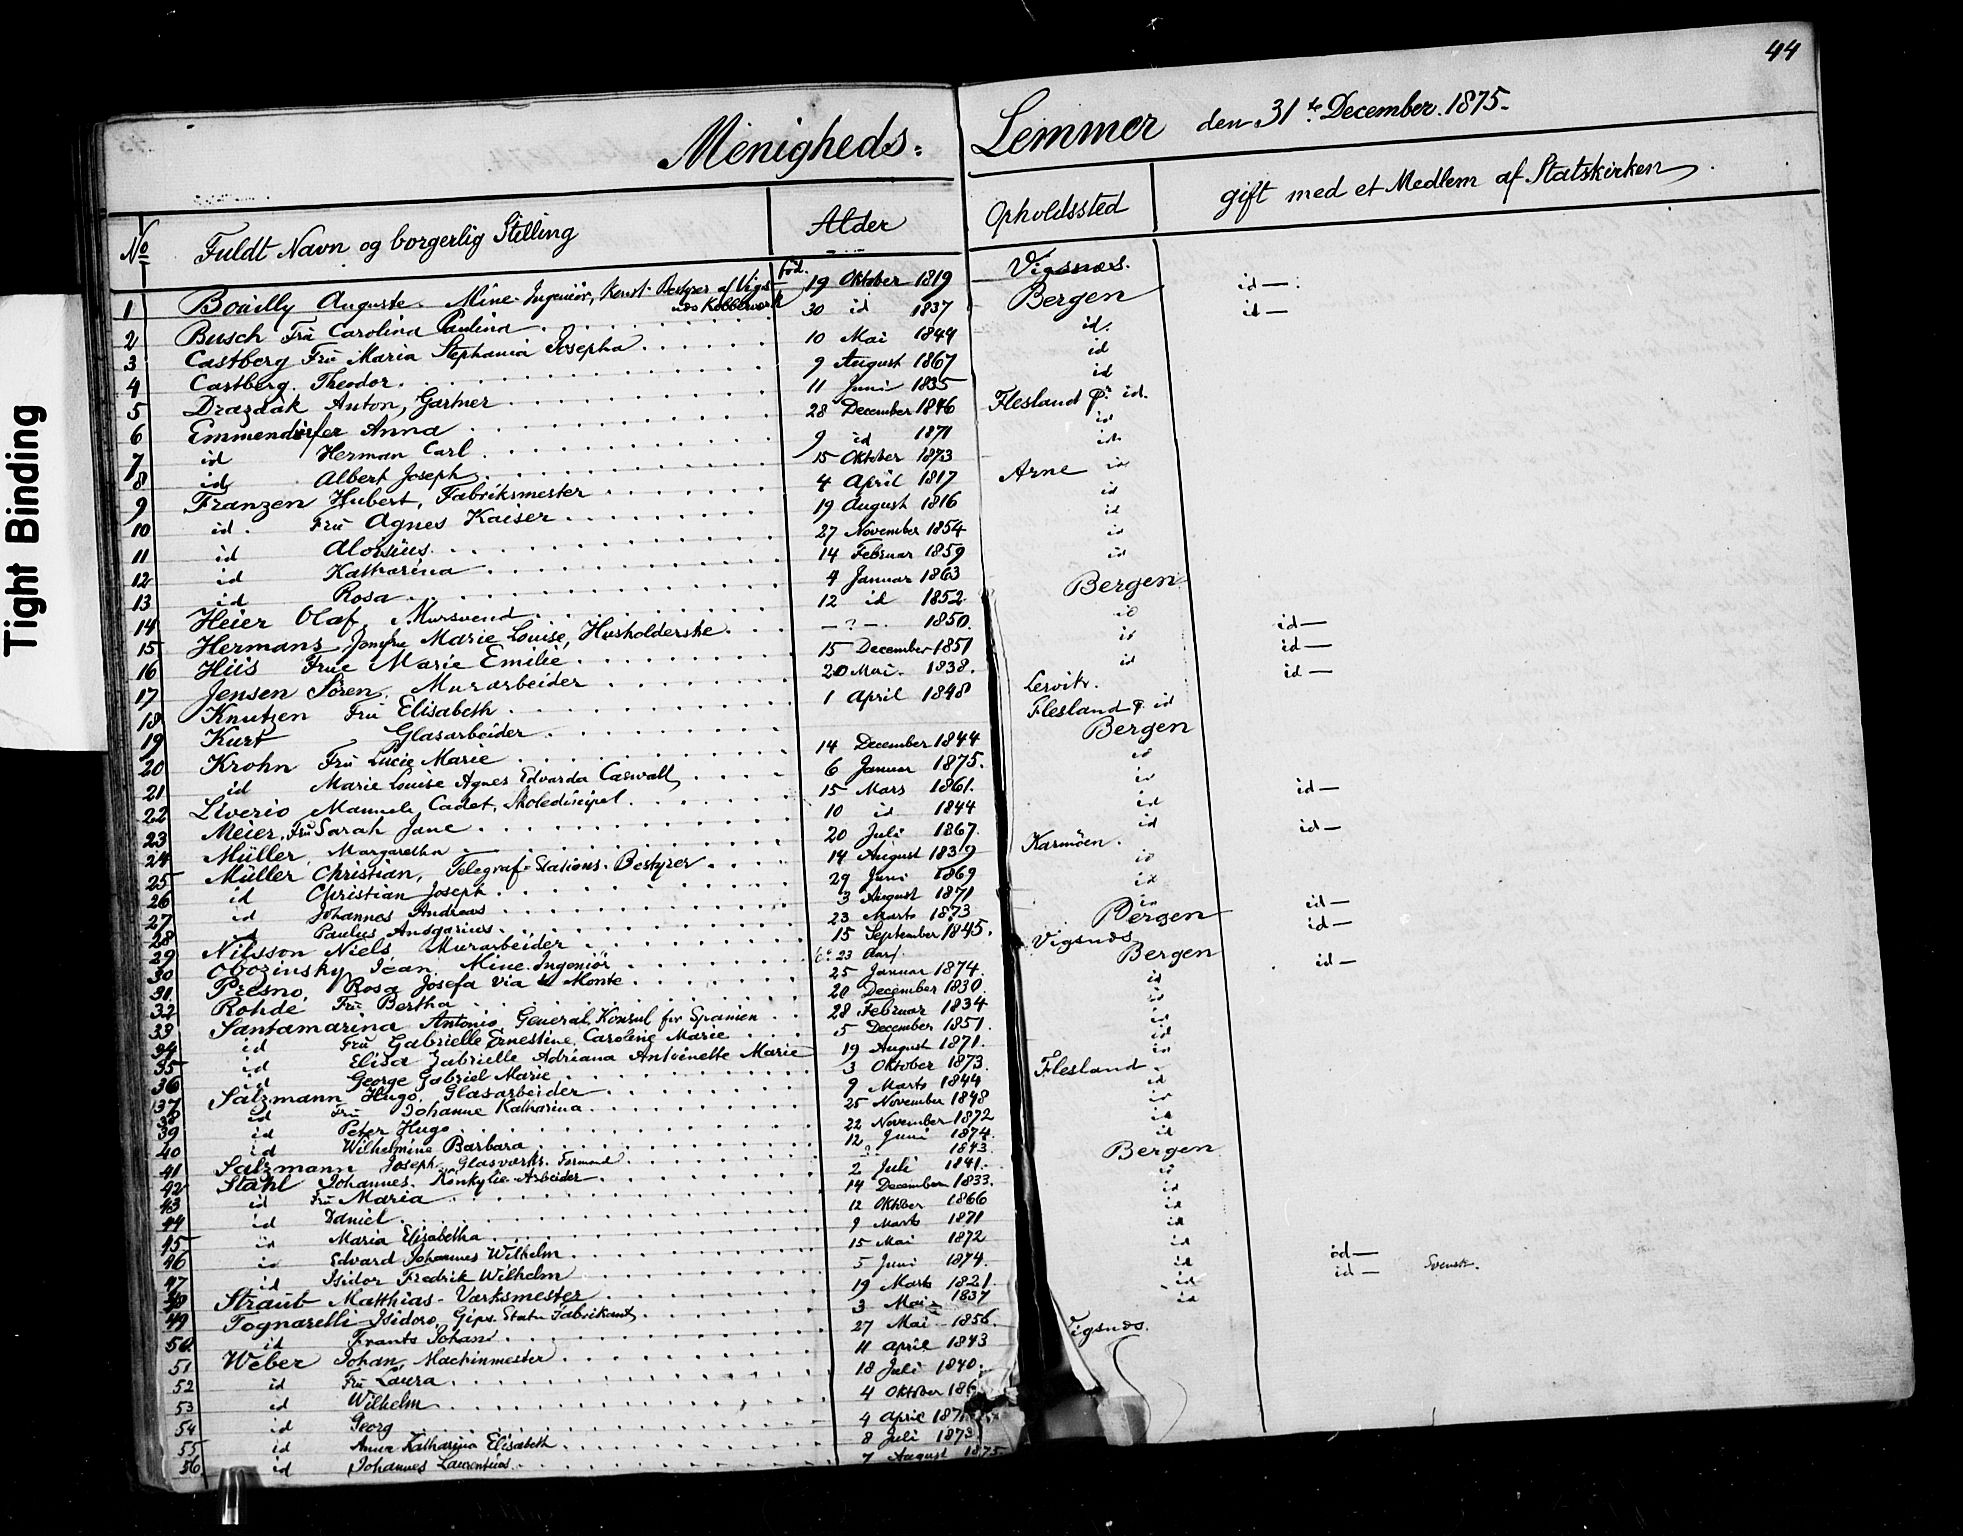 44
Tight Binding
Menigheds= Lemmer den 31te December 1875.
No Fuldt Navn og borgerlig Stilling Alder Opholdssted gift med et Medlem af Statskirken
1 Bouilly Auguste. Mine-Ingeniör, Konst. Bestyrer af Vigs- föd. 19 Oktober 1819 Vigsnæs.
næs Kobberværk
2 Busch Frü Carolina Paulina 30 id 1837 Bergen id — .
3 Castberg Frü Maria Stephania Josepha 10 Mai 1844 id. id —
4 Castberg. Theodor. 9 August 1867 id
5 Drazdák Anton, Gartner 11 Juni 1835 id
6 Emmendörfer Anna 28 December 1846 Flesland pr. id.
7 id Herman Carl 9 id 1871 id
8 id Albert Joseph 15 Oktober 1873 id.
9 Franzen Hubert, Fabriksmester 4 April 1817 Arne id
10 id. Frü Agnes Kaiser 19 August 1816 id
11 id Aloisius. 27 November 1854 id
12 id Katharina 14 Februar 1859 id
13 id Rosa 4 Januar 1863 id
14 Heier Olaf, Mursvend 12 id 1852 Bergen
15 Hermans, Jomfru Marie Louise, Husholderske — ? — 1850. id
16 Hiis Frue Marie Emilie 15 December 1851 id id —
17 Jensen Sören. Murarbeider 20 Mai. 1838. id id —
18 Knutzen Frü Elisabeth 1 April 1848 Lervik. id —
19 Kurt Glasarbeider Flesland p. id
20 Krohn Frü Lucie Marie 14 December 1844 Bergen
21 id Marie Louise Agnes Edvarda Caswall 6 Januar 1875. id
22 Liverio Manuel, Cadet, Skolediscipel 15 Mars 1861. id
23 Meier, Frü Sarah Jane 10 id 1844 id id —
24 Müller, Margaretha 20 Juli 1867. id
25 Müller Christian, Telegraf-Stations-Bestyrer 14 August 1839 Karmöen. id —
26 id Christian Joseph 29 Juni 1869 id
27 id Johannes Andreas 3 August 1871 id
28 id Paulus Ansgarius 23 Marts 1873 id
29 Nilsson Niels Murarbeider 15 September 1845. Bergen id —
30 Obozinsky Jean. Mine-Ingeniör 23 Aar Vigsnæs id —
31 Presno, Rosa Josefa Via del Monte 25 Januar 1874. Bergen
32 Rohde Frü Bertha 20 December 1830. id id —
33 Santamarina Antonio, General Konsul for Spanien 28 Februar 1834 id
34 id Frü Gabrielle Ernestine Caroline Marie 5 December 1851. id
35 id Elisa Gabrielle Adriana Antoinette Marie 19 August 1871. id
36 id George Gabriel Marie 3 Oktober 1873. id
37 Salzmann Hugo, Glasarbeider 9 Marts 1844 Flesland
38 id Frü Johanne Katharina 25 November 1848 id
39 id Peter Hugo 22 November 1872 id
40 id Wilhelmine Barbara 12 Juni 1874. id
41 Salzmann Joseph, Glasværks-Formand ? 1843. id
42 Stahl Johannes. Konkylie-Arbeider 2 Juli 1841. Bergen
43 id Frü Maria 14 December 1833. id
44 id Daniel 12 Oktober 1866 id
45 id Maria Elisabetha 9 Marts 1871 id
46 id Edvard Johannes Wilhelm 15 Mai 1872 id
47 id Isidor Fredrik Wilhelm 5 Juni 1874. id
48 Straub Matthias. Værksmester 19 Marts 1821. id id —
49 Tognarelli Isidoro, Gips-Statu-Fabrikant 3 Mai 1837 id id — Svensk.
50 id Frants Johan 27 Mai 1856. id
51 Weber Johan, Machinmester 11 April 1843 Vigsnæs.
52 id Frü Laura 18 Juli 1840.
53 id Wilhelm 4 Oktober 186
54 id Georg 4 April 187
55 id Anna Katharina Elisabeth 8 Juli 1873
56 id Johannes Laurentius 7 August 1875.